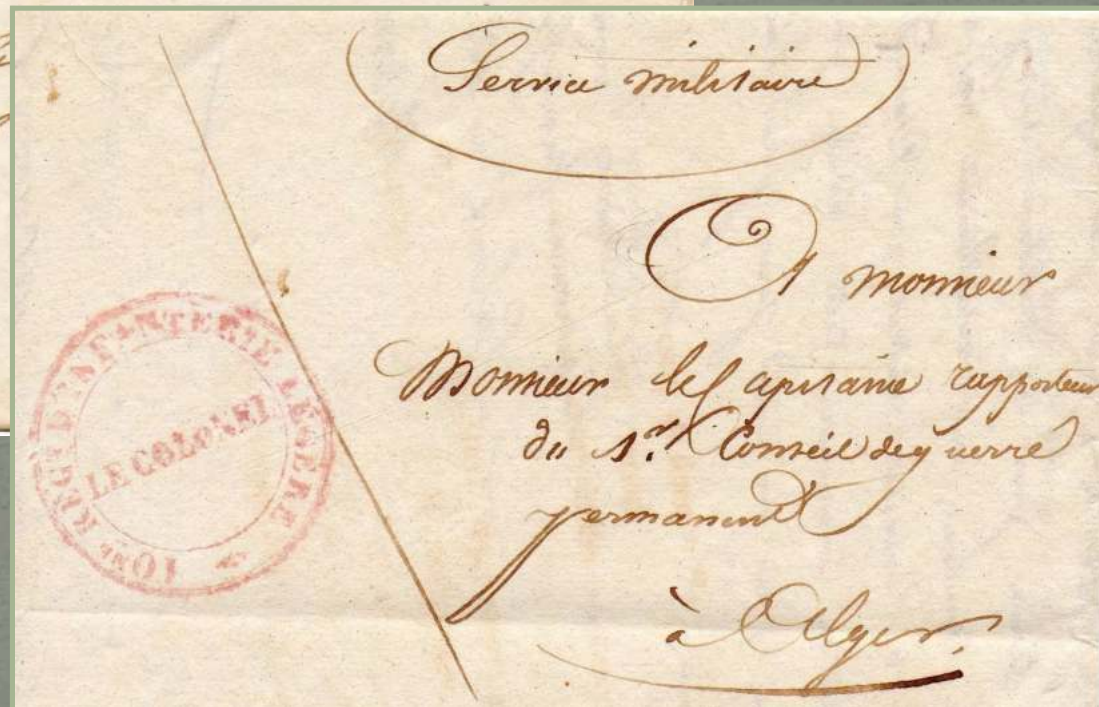 Service militaire
A monsieur
Monsieur le Capitaine rapporteur
du 1.er Conseil de guerre
permanent
à Alger.
10ME RÉGT D'INFANTERIE LÉGÈRE
LE COLONEL